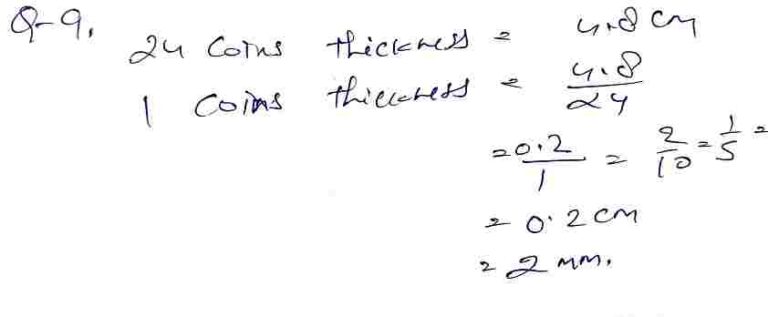 Q-9.
24 Coins thickness = 4.8 cm
1 Coins thickness = 4.8/24
= 0.2/1 = 2/10 = 1/5 =
= 0.2 cm
= 2 mm.